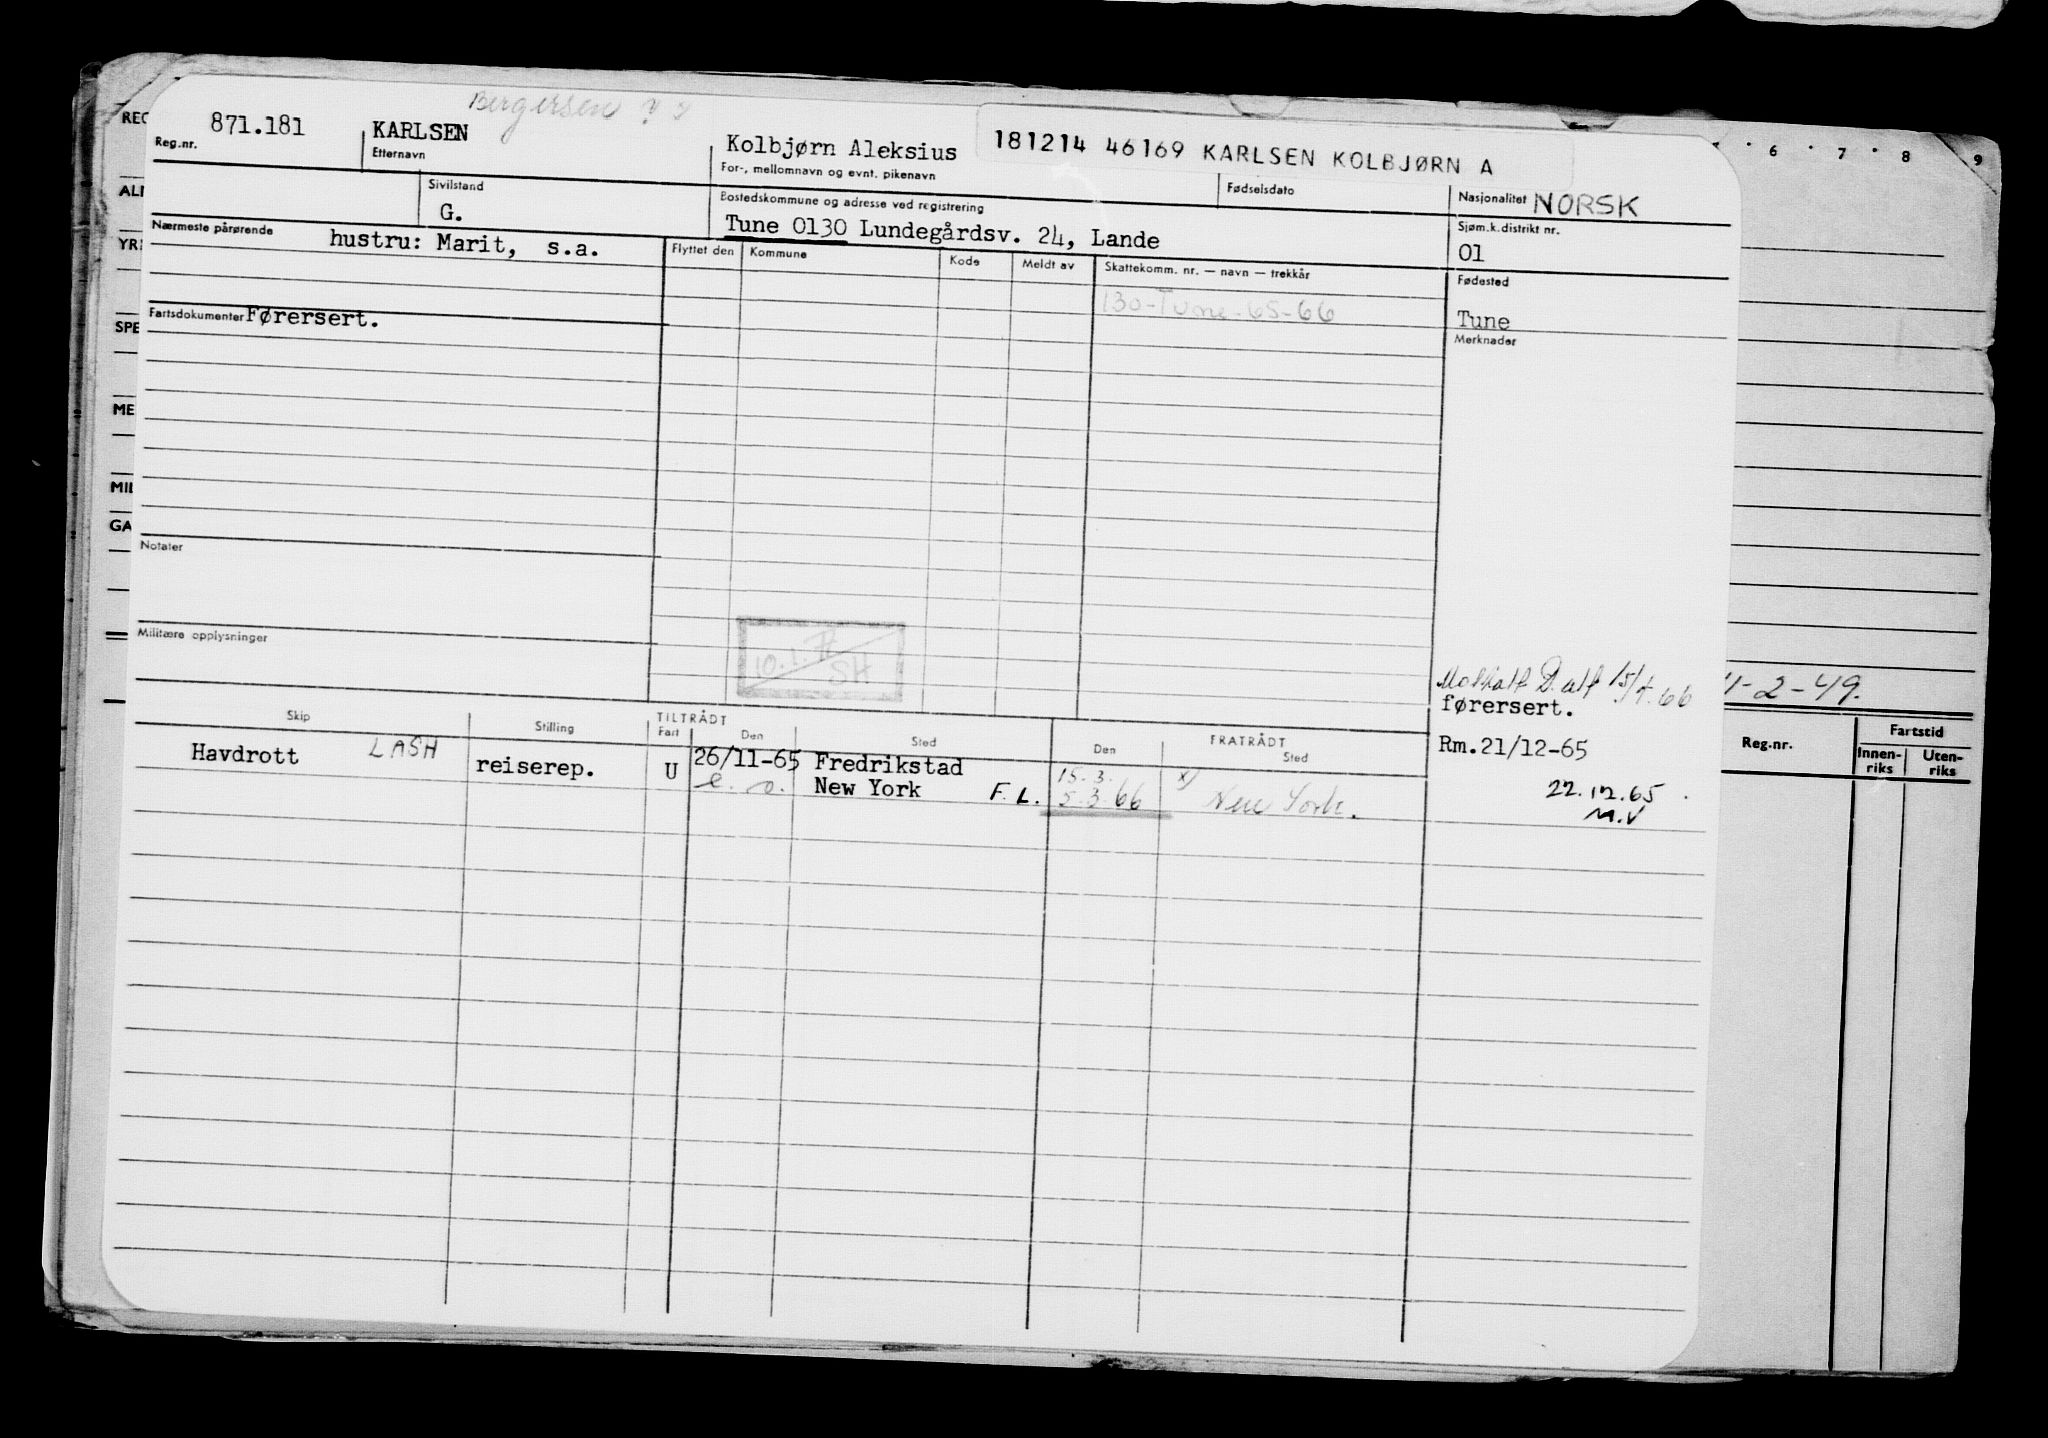 Bergersen
871.181 KARLSEN Kolbjørn Aleksius 181214 46169 KARLSEN KOLBJØRN A
Reg.nr. Etternavn For-, mellomnavn og evnt. pikenavn Fødselsdato
Sivilstand Bostedskommune og adresse ved registrering Nasjonalitet NORSK
G. Tune 0130 Lundegårdsv. 24, Lande Sjøm.k.distrikt nr.
01
Nærmeste pårørende hustru: Marit, s.a. Flyttet den Kommune Kode Meldt av Skattekomm. nr. — navn — trekkår Fødested
130-Tune-65-66
Tune
Fartsdokumenter Førersert. Merknader
Notater
Militære opplysninger
10.1.
SH
Mottatt D. alt 15/4.66
førersert.
Rm.21/12-65
22.12.65
M.V
Skip Stilling TILTRÅDT FRATRÅDT
Fart Den Sted Den Sted
Havdrott LASH reiserep. U 26/11-65 Fredrikstad 15.3. x)
New York F.L. 5.3.66 New York.
REG
ALI
YR
SPE
ME
MIL
GA
6 7 8 9
-2-49.
Reg.nr. Fartstid
Innen-riks Uten-riks